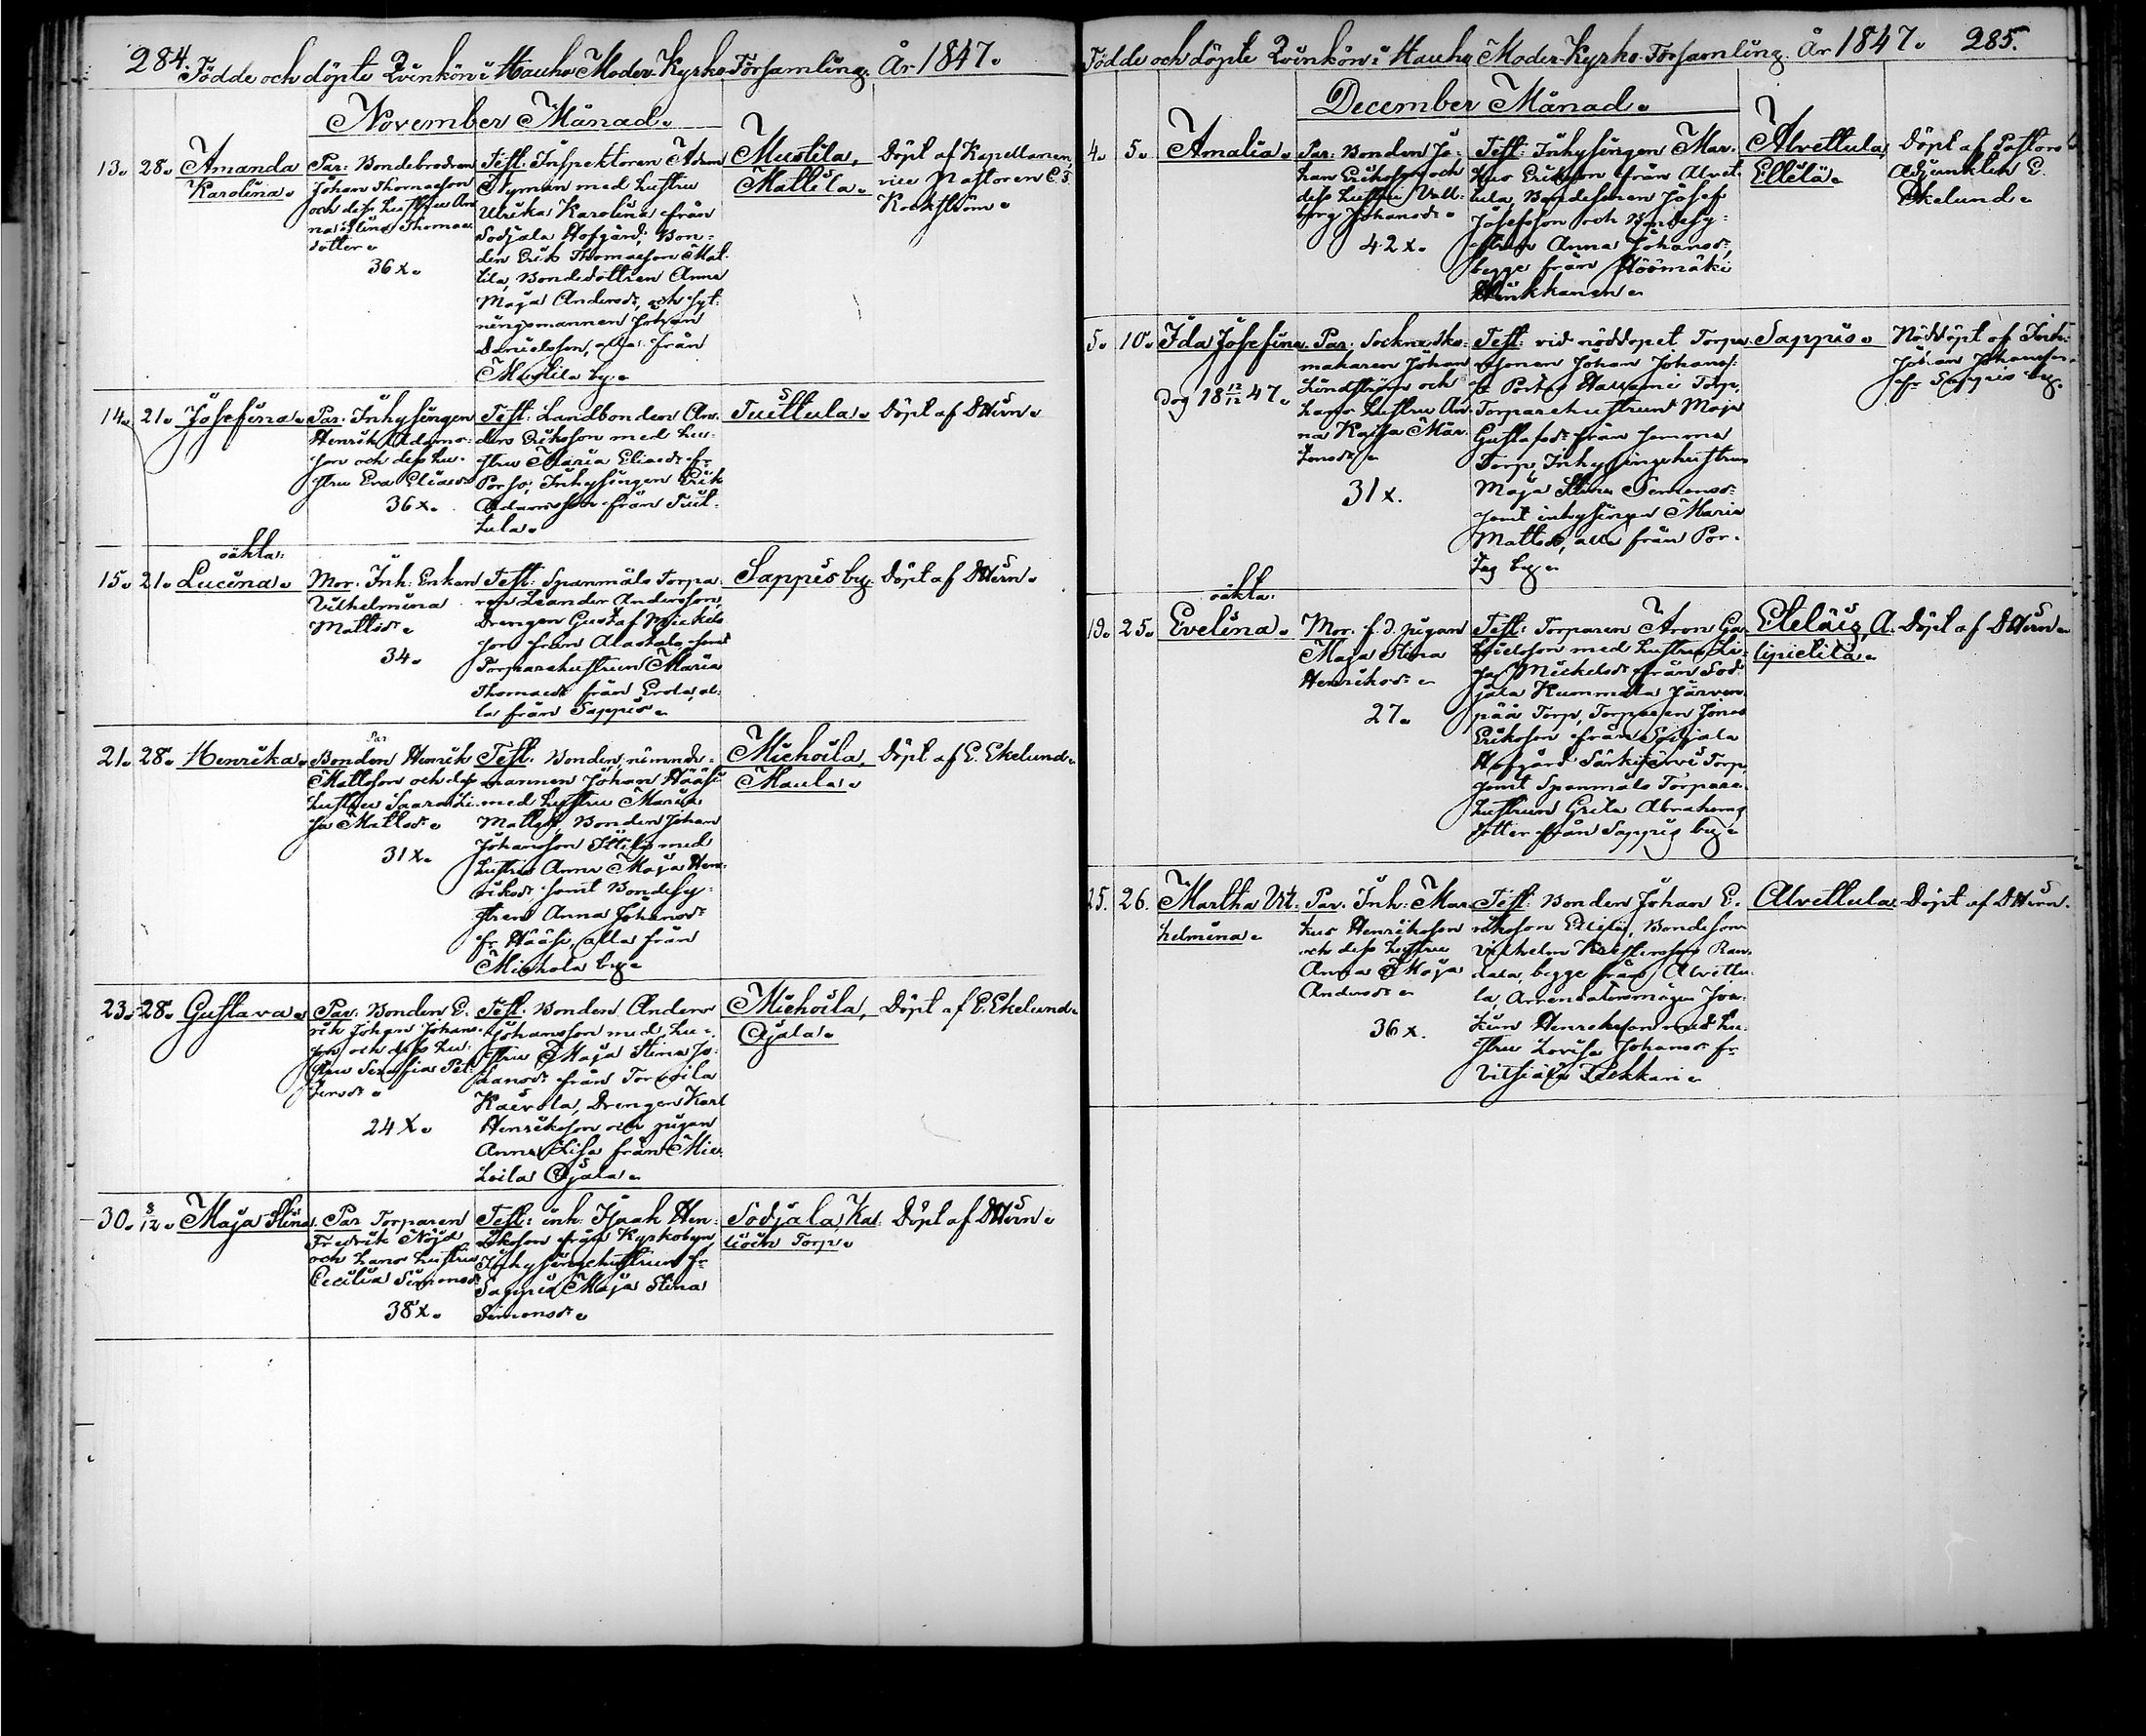 284. Födde och döpte Qvinkön i Hauho Moder-Kyrko-Församling. År 1847.
November Månad.
13. 28. Amanda
Karolina.
Par: Bondebrodren
Johan Thomasson
och dess hustru An
na Stina Thomas
dotter.
36 x.
Test: Inspektoren Adam
Nyman med hustru
Ulrika Karolina från
Sodjala Hofgård; Bon-
den Erik Thomasson Mat-
tila, Bondedottren Anna
Maja Andersdr, och syt-
ningsmannen Johan
Danielsson, alla från
Mustila by.
Mustila,
Mattila.
Döpt af Kapellanen,
vice Pastoren C. J.
Rockström.
14. 21. Josefina.
Par: Inhysingen
Henrik Adams-
son och dess hu-
stru Eva Eliasdr
36 x.
Test: Landbonden An-
ders Eriksson med hu-
stru Maria Eliasdr fr.
Porso, Inhysingen Erik
Adamsson från Tuit-
tula.
Tuittula.
Döpt af D Hirn.
15. 21.
oäkta:
Lucina.
Mor: Inh: Enkan
Vilhelmina
Mattsdr
34.
Test: Spanmåls Torpa-
ren Leander Andersson,
Drengen Gustaf Mickels
son från Alastalo, samt
Torparehustrun Maria
Thomasdr från Erola, al-
la från Sappis.
Sappis by.
Döpt af D Hirn.
21. 28. Henrika.
Par
Bonden Henrik
Mattsson och dess
hustru Saara Li-
sa Mattsdr.
31 x.
Test: Bonden, nämnde-
mannen Johan Hääsi
med hustru Maria
Mattsdr, Bonden Johan
Johansson Ittilä med
hustru Anna Maja Hen-
riksdr samt Bondehu-
strun Anna Johansdr
fr. Hääsi, alla från
Miehola by.
Miehoila,
Maula.
Döpt af E. Ekelund.
23. 28. Gustava.
Par: Bonden E-
rik Johan Johans-
son och dess hu-
stru Serafia Pet-
tersdr.
24 x.
Test: Bonden Anders
Johansson med hu-
stru Maja Stina Jo-
hansdr från Torvoila
Kaivola, Drengen Karl
Henriksson och pigan
Anna Lisa från Mie-
hoila Ojala.
Miehoila,
Ojala.
Döpt af E. Ekelund.
30. 8/12. Maja Stina.
Par Torparen
Fredrik Nöjd
och hans hustru
Cecilia Simonsdr
38 x.
Test: inh. Isaak Hen-
riksson från Kyrkobyn,
Inhysingehustrun fr.
Sappis Maja Stina
Simonsdr.
Sodjala, Kal-
Torp.
Döpt af D Hirn.
Födde och döpte Qvinkön i Hauho Moder-Kyrko-Församling. År 1847. 285.
December Månad.
4. 5. Amalia.
Par: Bonden Jo-
han Eriksson och
dess hustru Vall-
borg Johansdr.
42 x.
Test: Inhysingen Mar-
kus Eriksson från Alvet-
tula, Bondesonen Josef
Josefsson och Bondehu-
strun Anna Johansdr,
begge från Höömäki
Alvettula,
Ellilä.
Döpt af Pastors
Adjunkten E.
Ekelund.
5. 10. Ida Josefina.
Dog 18 12/12 47.
Par: Socknesko-
makaren Johan
Lindström och
hans hustru An-
na Kaisa Mår-
tensdr.
31 x.
Test: vid nöddopet Torpa-
resonen Johan Johans-
Torp,
Torparehustrun Maja
Gustafsdr från samma
Torp, Inhysingehustrun
Maja Stina Simonsdr
samt inhysingen Maria
Mattsdr, alla från Por-
by.
Sappis.
Nöddöpt af Inh:
Johan Johansson
fr. Sappis by.
19. 25.
oäkta:
Evelina.
Mor: f. d. pigan
Maja Stina
Henriksdr.
27.
Test: Torparen Aron Ga-
brielsson med hustru Li-
sa Mickelsdr från Sod-
jala Kummala Järven-
pää Torp, Torparen Jonas
Eriksson från Sodjala
Hofgård Särkijärvi Torp,
samt Spanmåls Torpare-
hustrun Greta Abrahams
dotter från Sappis by.
Eteläis, A-
lipietilä.
Döpt af D Hirn.
25. 26. Martha Vil-
helmina.
Par: Inh: Mar-
kus Henriksson
och dess hustru
Anna Maja
Andersdr.
36 x.
Test: Bonden Johan E-
riksson Ellilä, Bondeson
Vilhelm Kristersson Ran-
tala, begge från Alvettu-
la, Arrendatorsmågen Joa-
kim Henriksson med hu-
stru Lovisa Johansdr fr.
Vitsiälä Pekkari.
Alvettula.
Döpt af D Hirn.